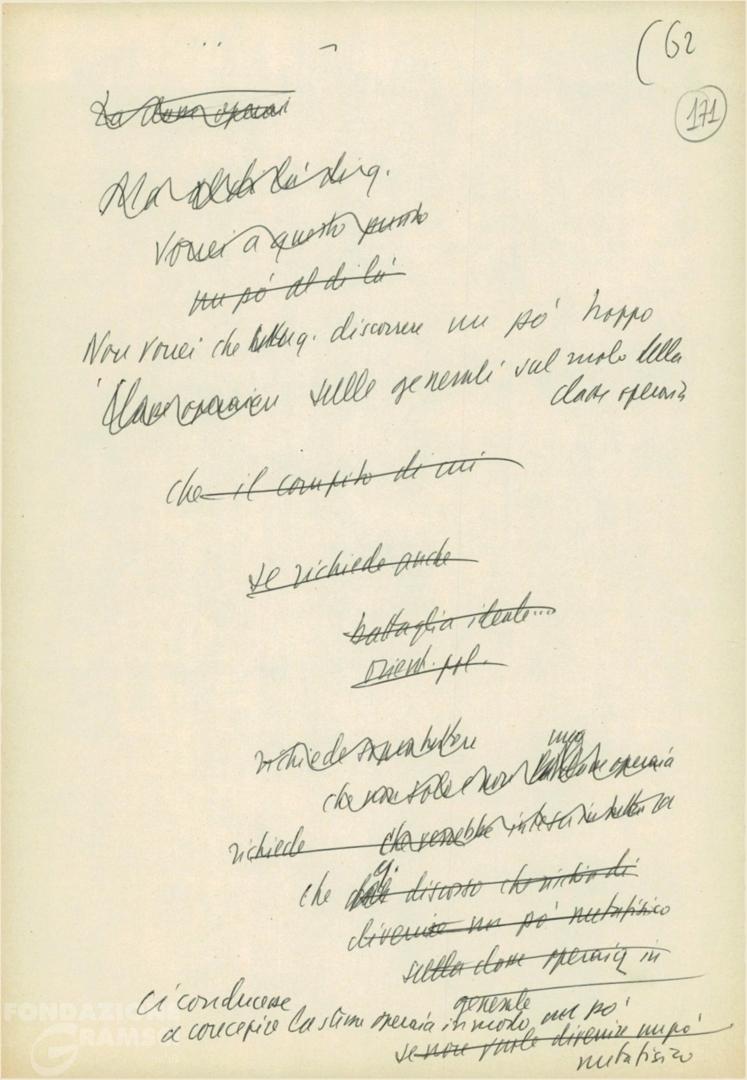 (62
171
La classe operai
Ma al di là dirig.
Vorrei a questo punto
un pó al di là
Non vorrei che q. discorrere un pó troppo
sulle generali sul ruolo della
classe operaia
che il compito di
se richiede anche
battaglia ideale...
orient. pol.
richiede sopratuttere
che non solo e non classe operaia
richiede che verrebbe intesa
che q. discorso che richiedi
divenire un pó metafisico
sulla classe operaia in
generale
ci conducesse
a concepire la classe operaia in modo un pó
se non vuole divenire un pó
metafisico
FONDAZIONE
GRAMSCI